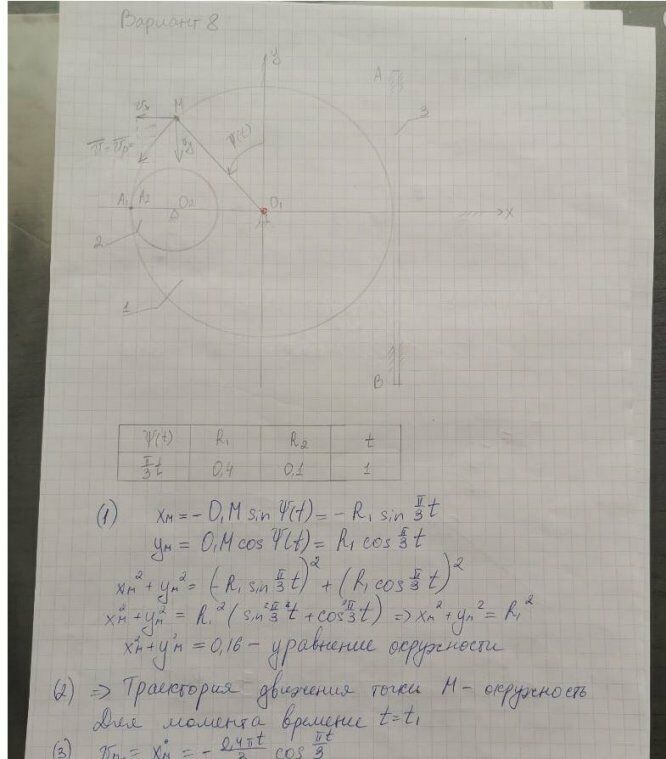 Вариант 8
y
A
3
M
ψ(t)
A₁ A₂ O₂
O₁
x
2
1
B
Ψ(t) R₁ R₂ t
π/3 t 0,4 0,1 1
(1) xₘ = - O₁M sin Ψ(t) = - R₁ sin π/3 t
yₘ = O₁M cos Ψ(t) = R₁ cos π/3 t
xₘ² + yₘ² = (-R₁ sin π/3 t)² + (R₁ cos π/3 t)²
xₘ² + yₘ² = R₁² (sin² π/3 t + cos² π/3 t) => xₘ² + yₘ² = R₁²
xₘ² + yₘ² = 0,16 - уравнение окружности
(2) => Траектория движения точки М - окружность
Для момента времени t = t₁
(3) = ẋₘ = - cos πt/3